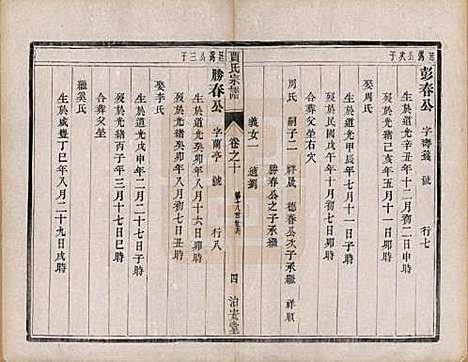 廷彭公次子
彭春公 字壽錢 號 行七
生於道光辛丑年十二月初八日卯時
歿於光緒己亥年四月初二日寅時
娶周氏
生於道光甲辰年七月初一日寅時
歿於民國戊午年十月初八日卯時
合葬父坐右穴
周氏 嗣子二 祥晟 德春公次子承繼 祥順
勝春公之子承繼
義女一 適劉
賈氏宗譜 卷之十 四 治安堂
公三子
勝春公 字蘭亭 號 行八
生於道光癸卯年八月十六日卯時
歿於光緒癸卯年八月初七日丑時
娶李氏
生於道光戊申年二月二十七日子時
歿於光緒丙子年三月十七日巳時
合葬父坐
繼奚氏
生於咸豐丁巳年八月二十九日戌時